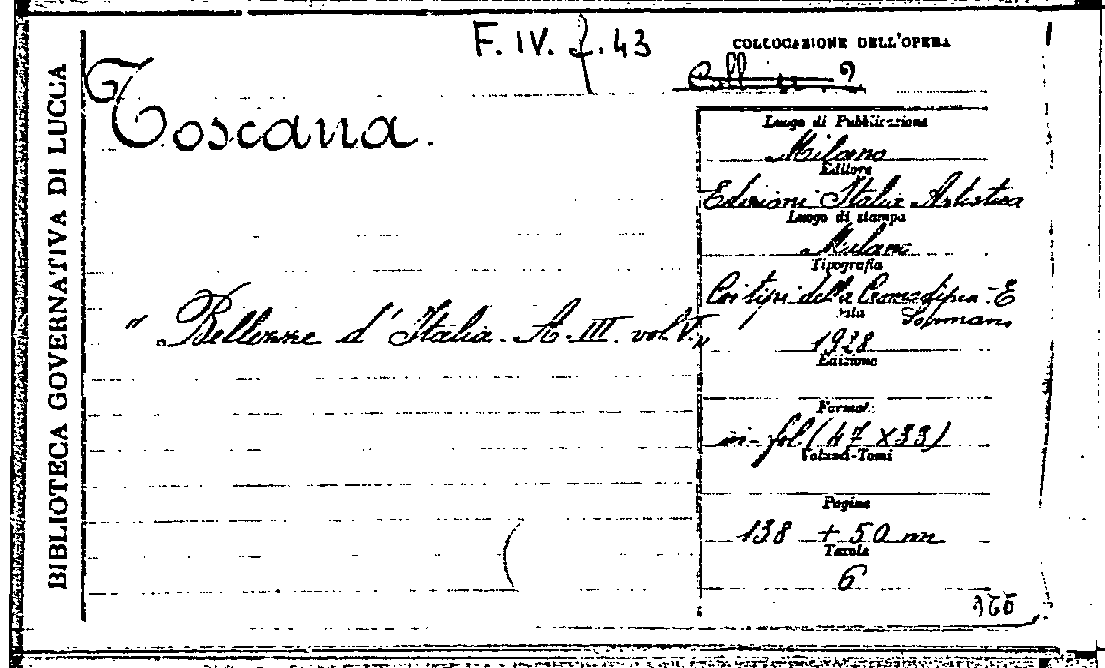 BIBLIOTECA GOVERNATIVA DI LUCCA
F. IV. f. 43
COLLOCAZIONE DELL'OPERA
Toscana.
Luogo di Pubblicazione
Milano
Editore
Edizioni Italia Artistica
Luogo di stampa
Milano
Tipografia
Coi tipi della
E
1928
Edizione
" Bellezze d'Italia. A. III. vol. V. "
Formato
in-fol (47 X 33)
Volumi-Tomi
Pagine
138 + 50 nn
Tavole
6